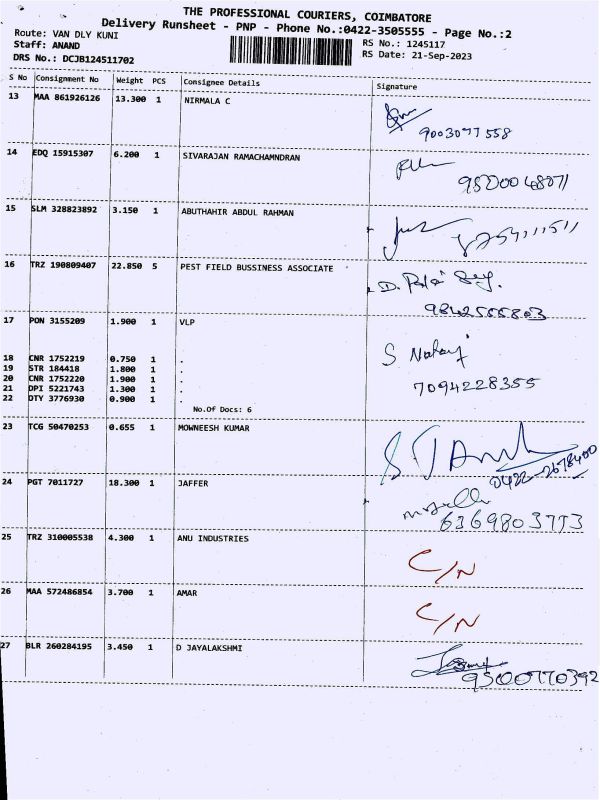 THE PROFESSIONAL COURIERS, COIMBATORE
Delivery Runsheet - PNP - Phone No.:0422-3505555 - Page No.:2
Route: VAN DLY KUNI
Staff: ANAND
RS No.: 1245117
DRS No.: DCJB124511702
RS Date: 21-Sep-2023
S No Consignment No Weight PCS Consignee Details Signature
13 MAA 861926126 13.300 1 NIRMALA C
9003077558
14 EDQ 15915307 6.200 1 SIVARAJAN RAMACHAMNDRAN
9500048071
15 SLM 328823892 3.150 1 ABUTHAIR ABDUL RAHMAN
8754111511
16 TRZ 190809407 22.850 5 PEST FIELD BUSSINESS ASSOCIATE
D.
9842555803
17 PON 3155209 1.900 1 VLP
S Nataraj
18 CNR 1752219 0.750 1 .
19 STR 184418 1.800 1 .
20 CNR 1752220 1.900 1 .
7094228355
21 DPI 5221743 1.300 1 .
22 DTY 3776930 0.900 1 .
No.Of Docs: 6
23 TCG 50470253 0.655 1 MOWNEESH KUMAR
0422-2678400
24 PGT 7011727 18.300 1 JAFFER
6369803773
25 TRZ 310005538 4.300 1 ANU INDUSTRIES
C/N
26 MAA 572486854 3.700 1 AMAR
C/N
27 BLR 260284195 3.450 1 D JAYALAKSHMI
9500770392